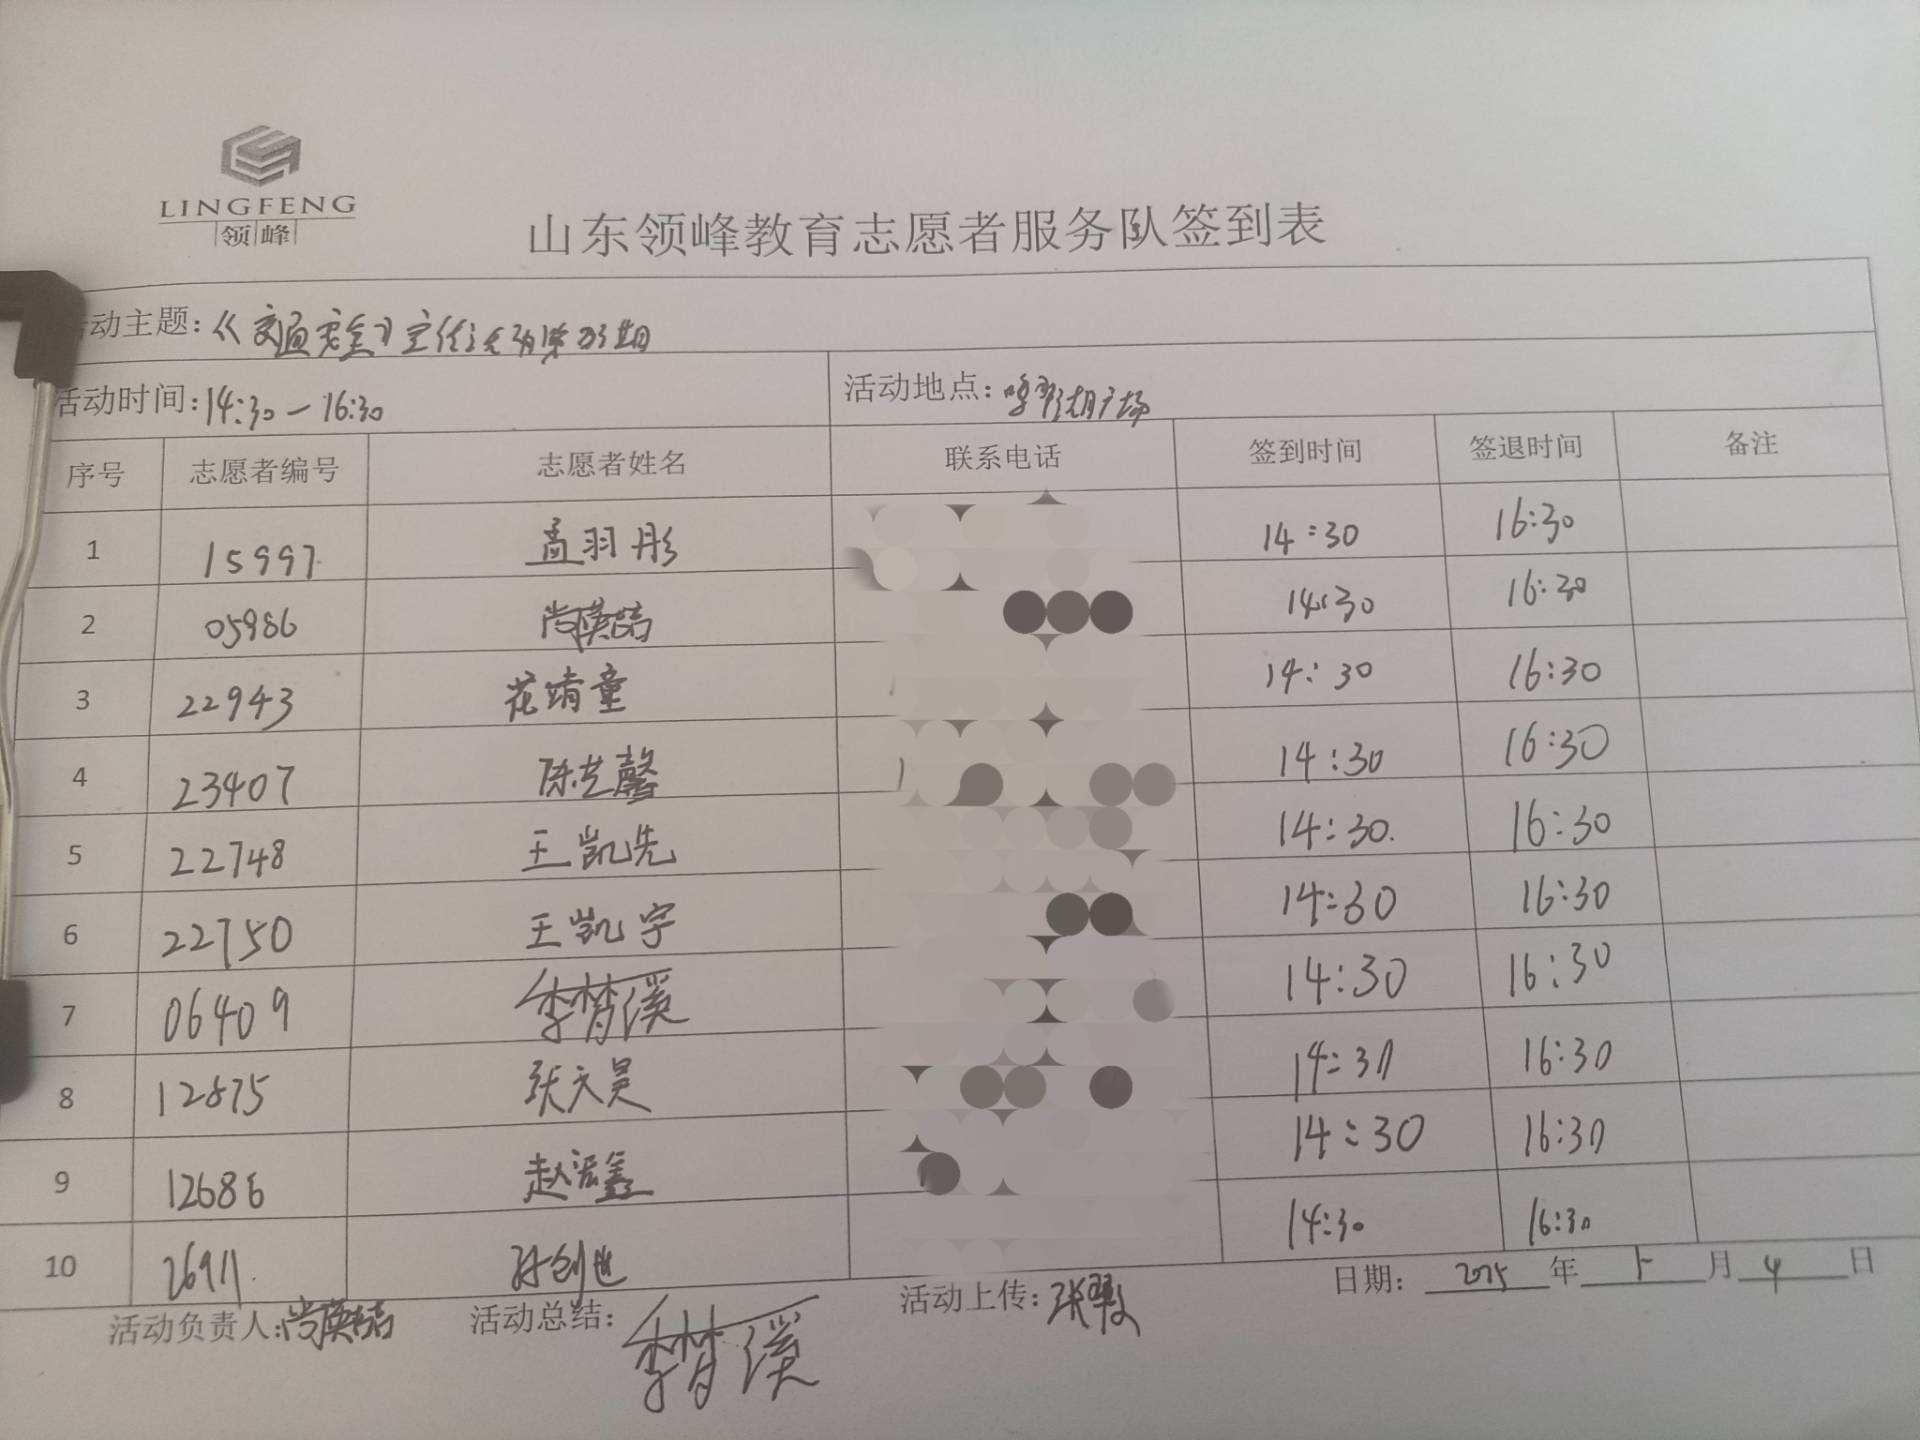 LINGFENG
领峰
山东领峰教育志愿者服务队签到表
活动主题：《交通安全》宣传活动第 期
活动时间：14:30—16:30 活动地点： 广场
序号 志愿者编号 志愿者姓名 联系电话 签到时间 签退时间 备注
1 15997 孟羽彤 14:30 16:30
2 05986 尚 14:30 16:30
3 22943 花靖童 14:30 16:30
4 23407 陈艺馨 14:30 16:30
5 22748 王凯先 14:30 16:30
6 22750 王凯宇 14:30 16:30
7 06409 李梦溪 14:30 16:30
8 12875 张文昊 14:30 16:30
9 12686 赵 鑫 14:30 16:30
10 26911 孙创世 14:30 16:30
日期： 2025 年 5 月 4 日
活动负责人：尚 活动总结：李梦溪 活动上传：张